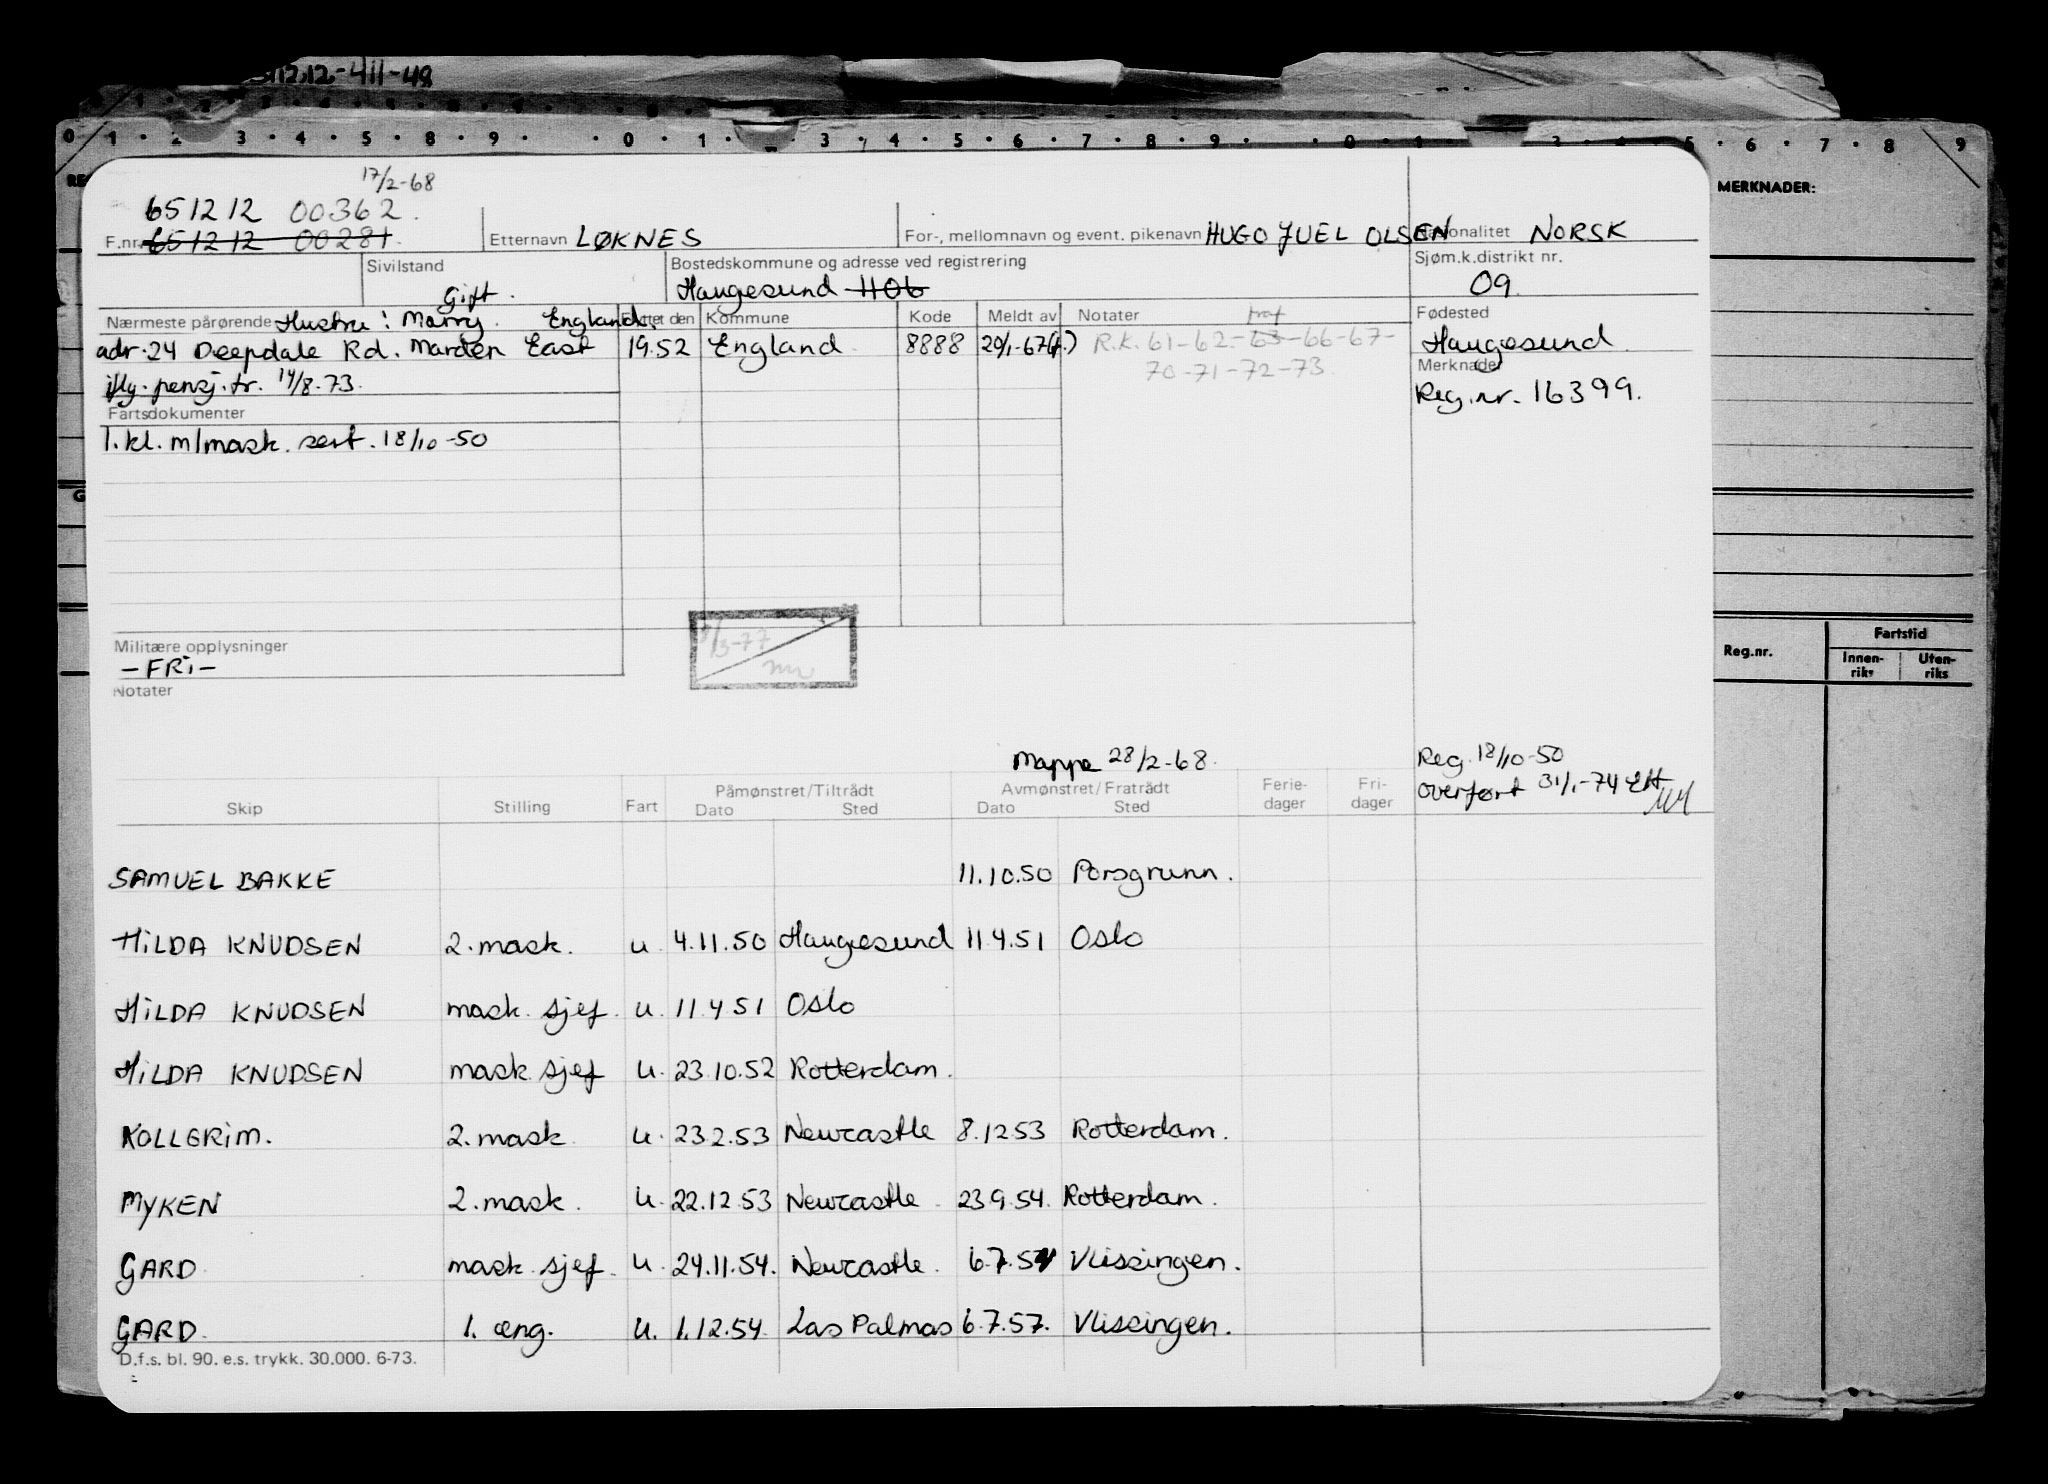 12.12-411-48
0 1 2 3 4 5 8 9 0 1 3 4 5 6 7 8 9 0 1 3 4 5 6 7 8 9
MERKNADER:
17/2-68
651212 00362.
F.nr. 651212 00281. Etternavn LØKNES For-, mellomnavn og event. pikenavn HUGO JUEL OLSEN Nasjonalitet NORSK
Sivilstand Gift. Bostedskommune og adresse ved registrering Haugesund 1106 Sjøm.k.distrikt nr. 09.
Nærmeste pårørende Hustru: Marry. England. Flyttet den Kommune Kode Meldt av Notater Fødested
adr. 24 Deepdale Rd. Marden East 19.52 England. 8888 20/1-67 R.K. 61-62-63-66-67- Haugesund.
70-71-72-73.
flg. pensj. tr. 14/8-73. Merknader
Fartsdokumenter Reg.nr. 16399.
1. kl. m/mask. sert. 18/10-50
Militære opplysninger
-FRi-
/3-77
Notater
Reg.nr. Fartstid
Innen-riks Uten-riks
Mappe 28/2-68. Reg. 18/10-50
overført 31/1-74
Skip Stilling Fart Påmønstret/Tiltrådt Dato Sted Avmønstret/Fratrådt Dato Sted Ferie-dager Fri-dager
SAMUEL BAKKE 11.10.50 Porsgrunn.
HiLDA KNUDSEN 2. mask. u. 4.11.50 Haugesund 11.4.51 Oslo
HiLDA KNUDSEN mask. sjef. u. 11.4 51 Oslo
HiLDA KNUDSEN mask sjef u. 23.10.52 Rotterdam.
KOLLGRiM. 2. mask u. 23.2.53 Newcastle 8.12 53 Rotterdam.
MYKEN 2. mask. u. 22.12.53 Newcastle. 23 9.54. Rotterdam.
GARD mask. sjef. u. 24.11.54. Newcastle. 6.7.57 Vlissingen.
GARD. 1. eng. u. 1.12.54. Las Palmas 6.7.57. Vlissingen.
D.f.s. bl. 90. e.s. trykk. 30.000. 6-73.